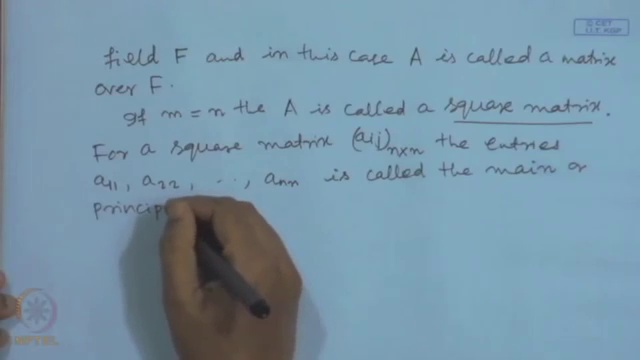 © CET
I.I.T. KGP
field F and in this case A is called a matrix
over F.
If m = n the A is called a square matrix.
For a square matrix (aij)n×n the entries
a11, a22, ..., ann is called the main or
princip
NPTEL